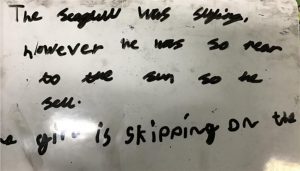 The seagull was flying,
however he was so near
to the sun so he
fell.
e girl is skipping on the